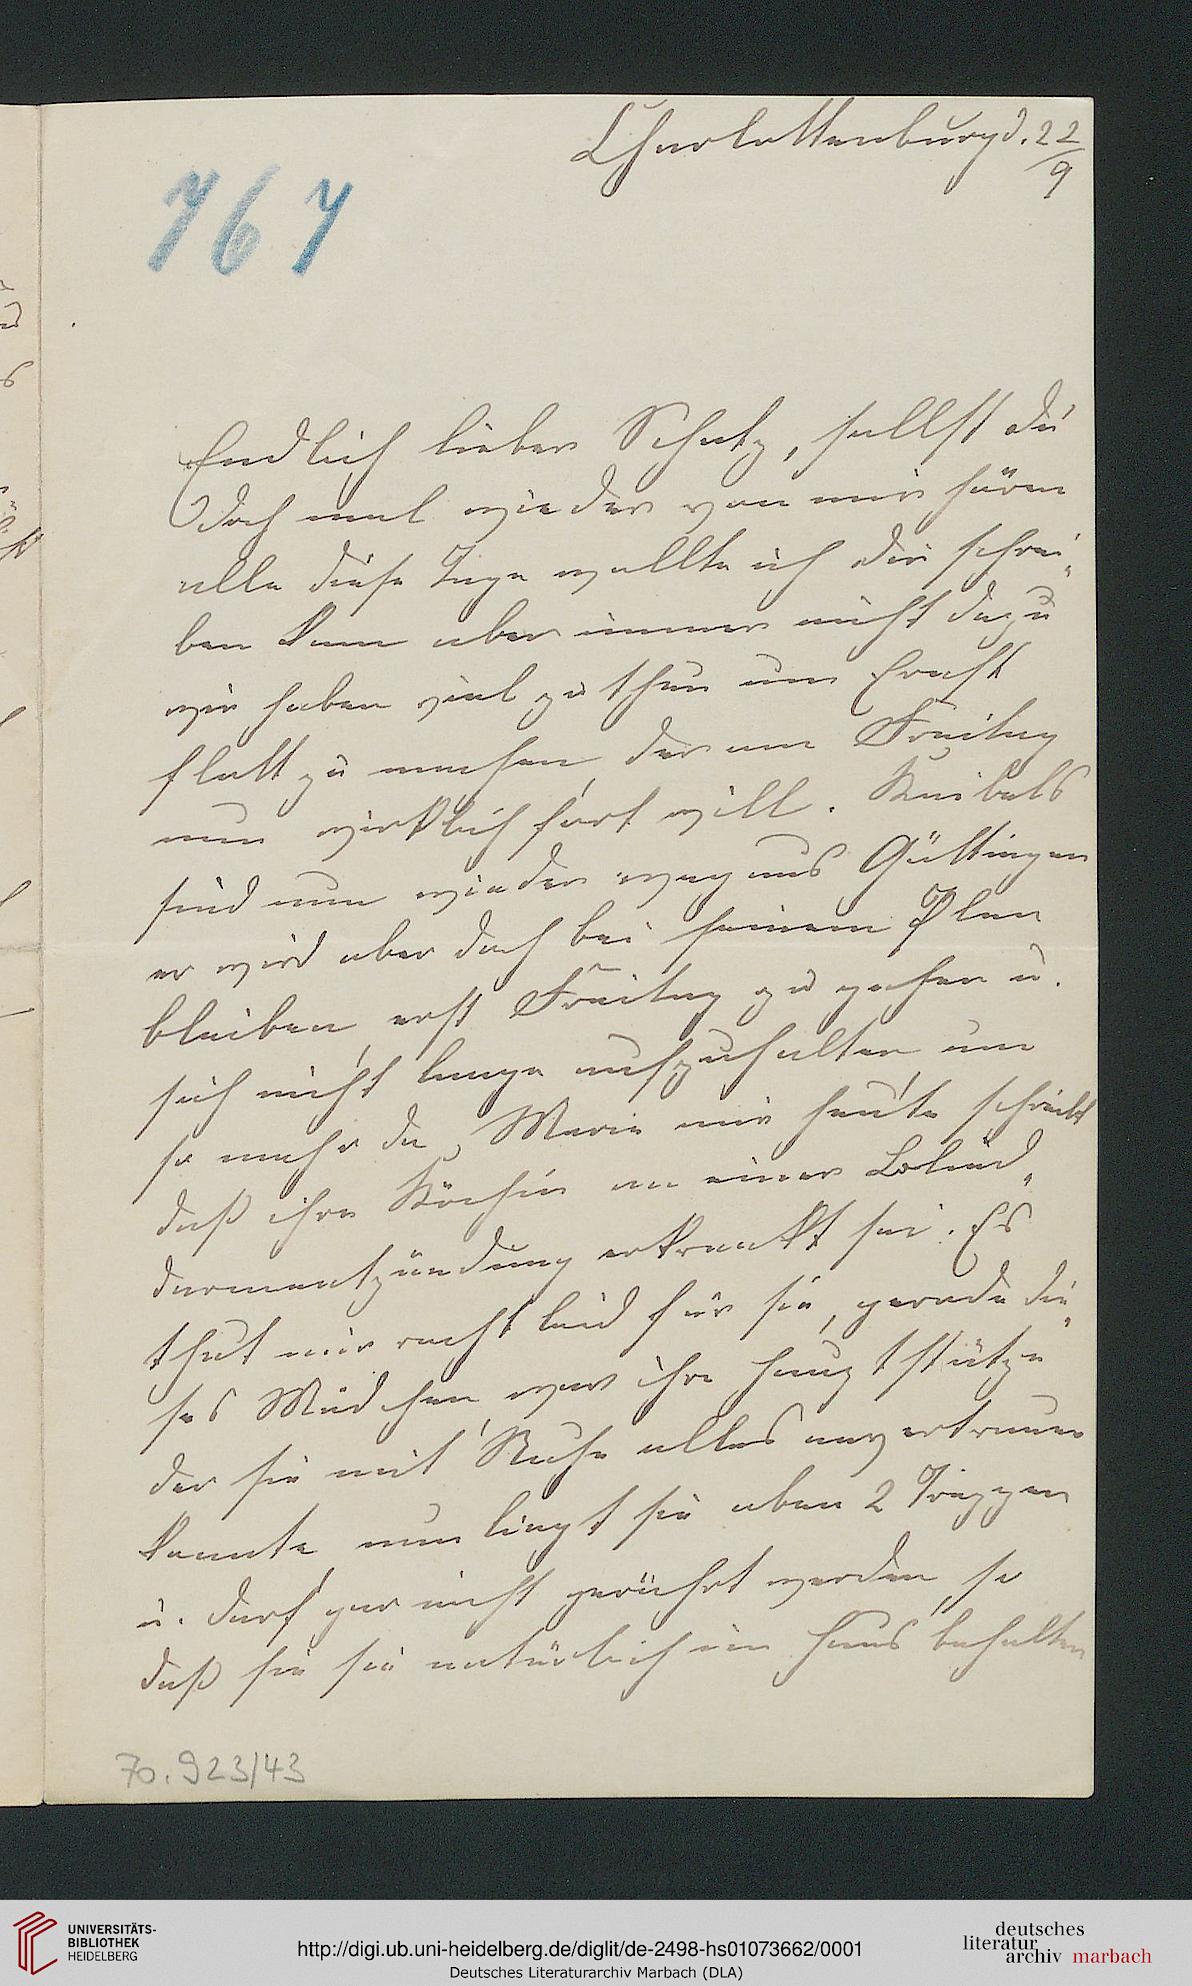 Charlottenburg d. 22/9
767
Endlich lieber Schatz, sollst du
doch mal wieder von mir hören
alle diese Tage wollte ich dir schrei-
ben kam aber immer nicht dazu
wir haben viel zu thun um Ernst
flott zu machen, der am Freitag
nun wirklich fort will.
sind nun wieder weg aus Göttingen
er wird aber doch bei seinem Plan
bleiben, erst Freitag zu gehen u.
sich nicht lange aufzuhalten, um
so mehr da, Marie mir heute schreibt
daß ihre Köchin an einer Blind-
darmentzündung erkrankt sei. Es
thut mir recht leid für sie, gerade die-
ses Mädchen war ihre Hauptstütze
der sie mit Ruhe alles anvertrauen
konnte, nun liegt sie oben 2 Treppen
u. darf gar nicht gerührt werden, so
daß sie sie natürlich im Haus behalten
70.923/43
UNIVERSITÄTS-
BIBLIOTHEK
HEIDELBERG
http://digi.ub.uni-heidelberg.de/diglit/de-2498-hs01073662/0001
Deutsches Literaturarchiv Marbach (DLA)
deutsches
literatur
archiv marbach